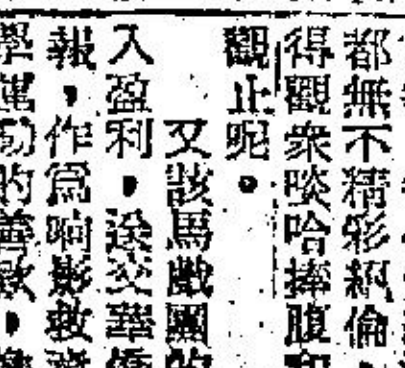 都無不精彩絕倫
得觀衆啖哈捧腹
觀止呢。
又該馬戲團的
入盈利，送交華僑
報，作爲响影救
學運動的善款，